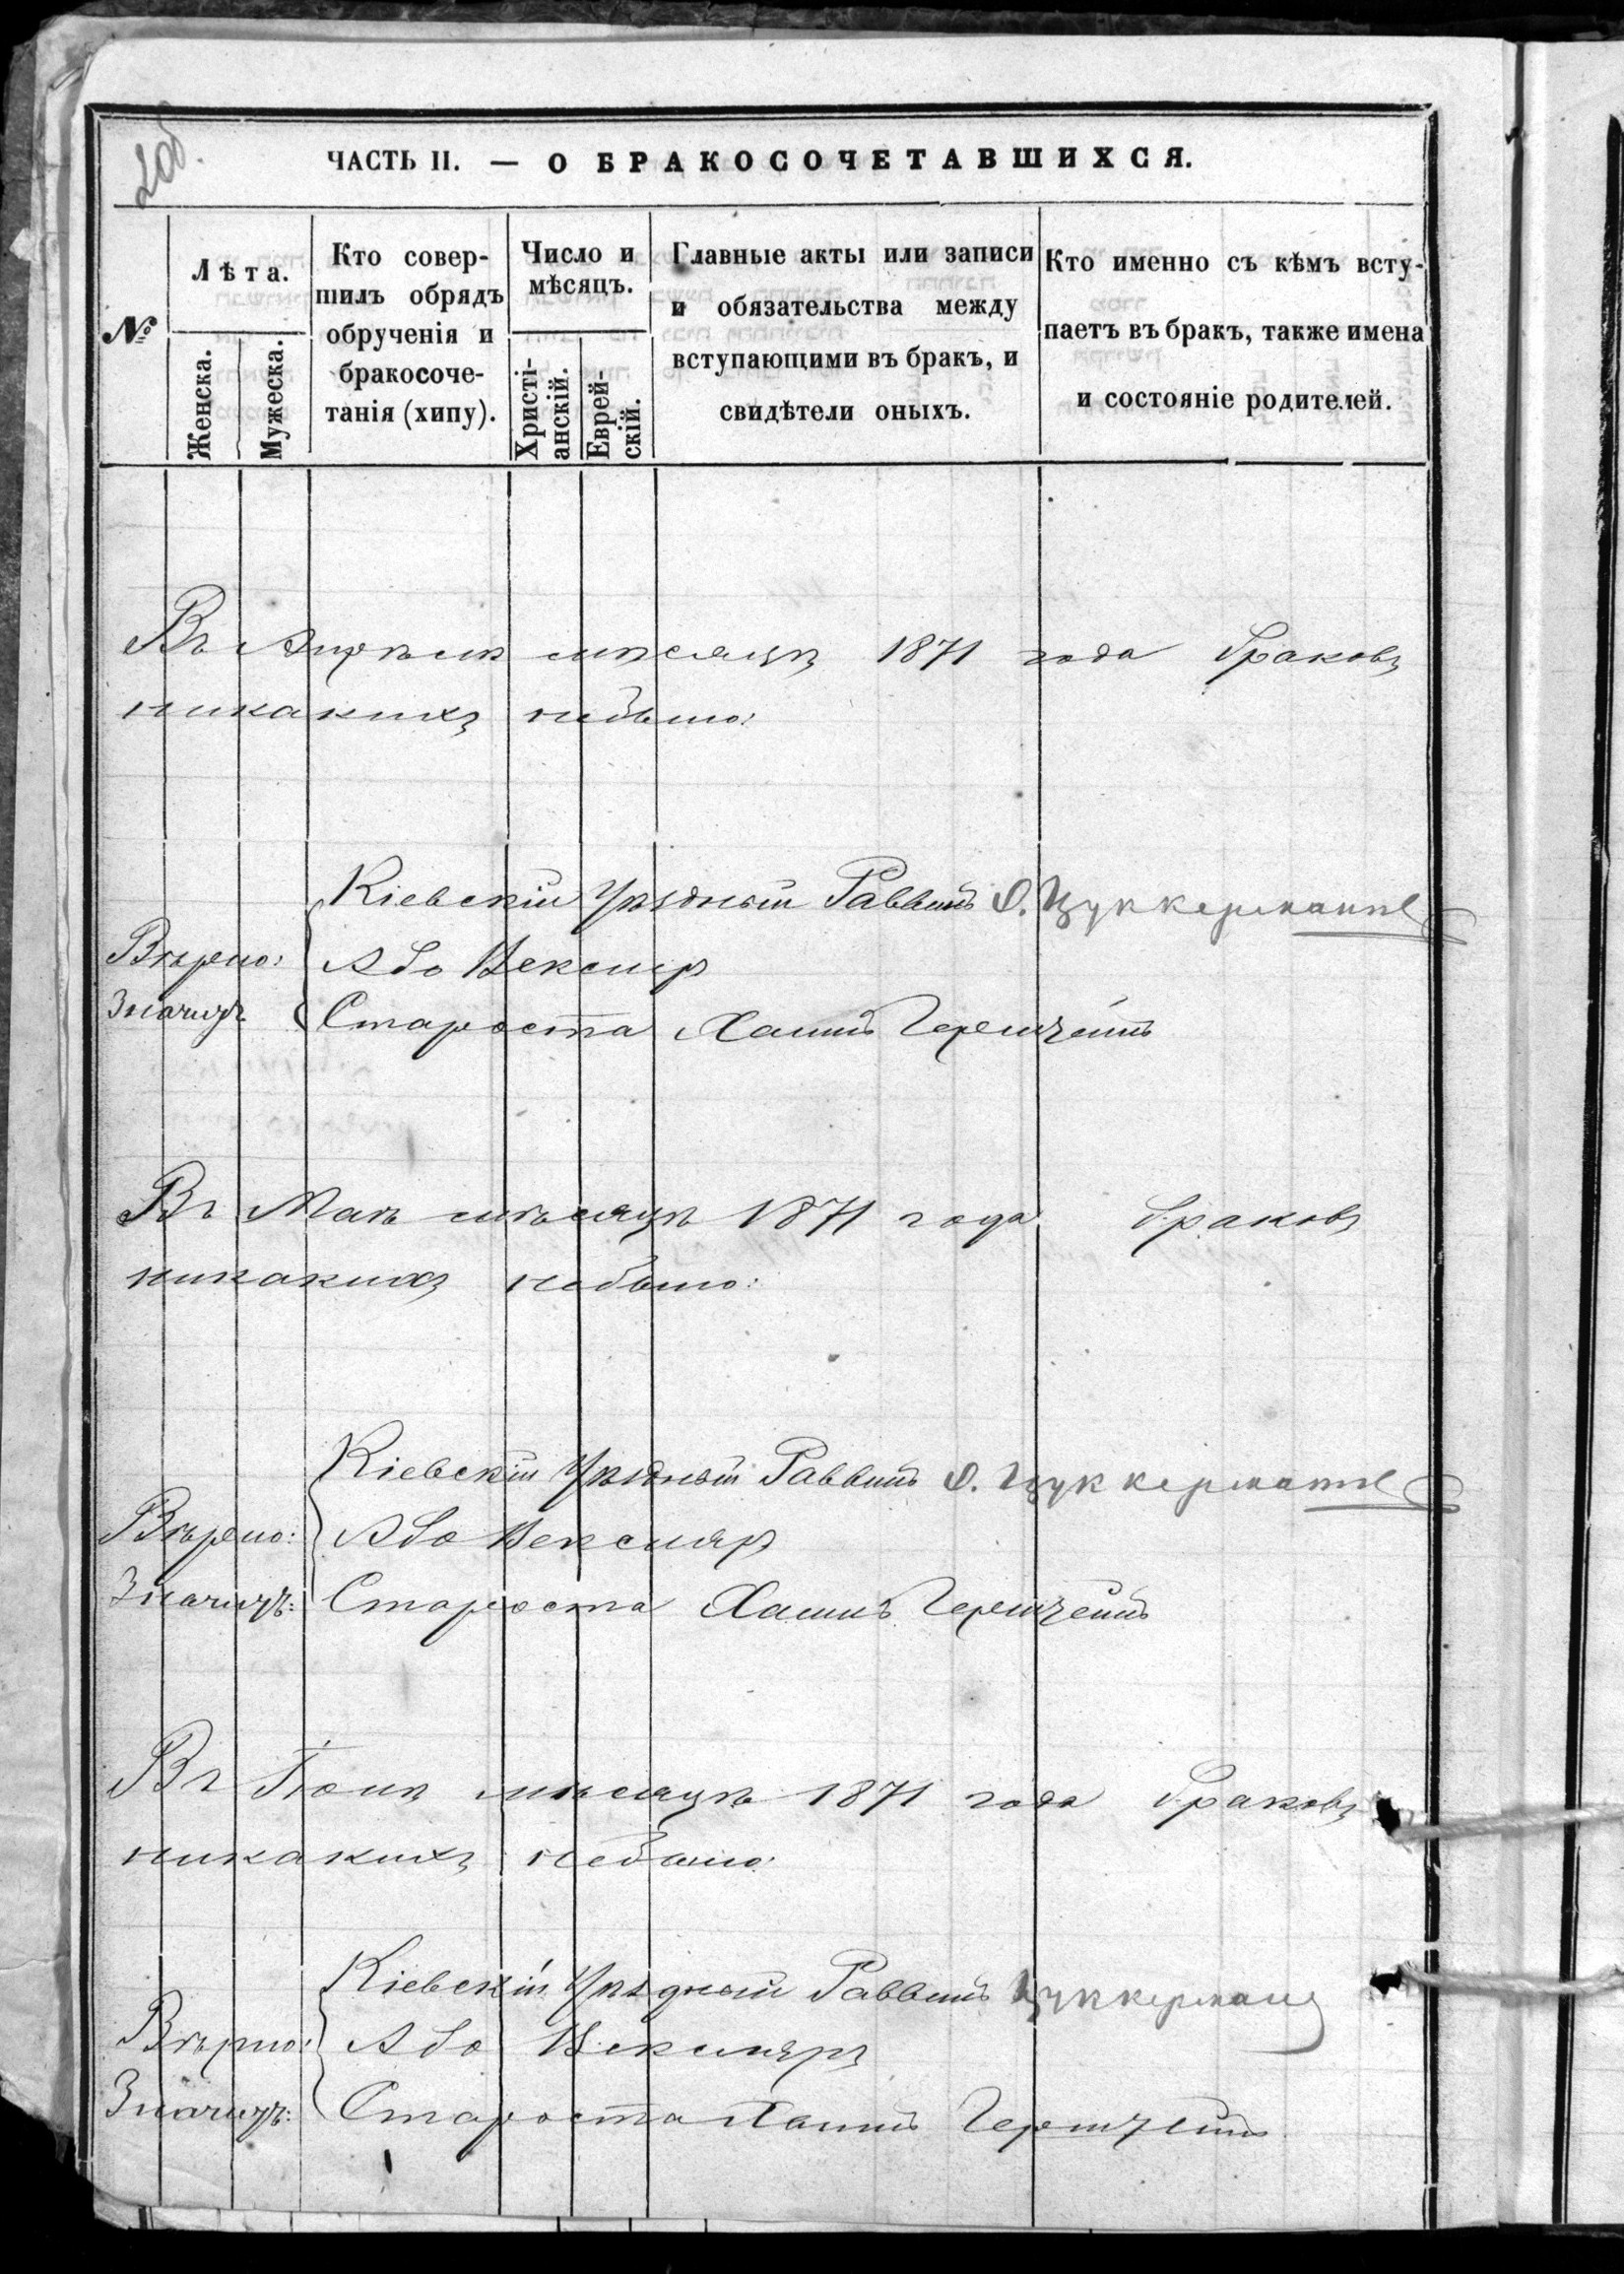 2об.
ЧАСТЬ II. — О БРАКОСОЧЕТАВШИХСЯ.
№
Лѣта.
Женска.
Мужеска.
Кто совер-
шилъ обрядъ
обрученія и
бракосоче-
танія (хипу).
Число и
мѣсяцъ.
Христі-
анскій.
Еврей-
скій.
Главные акты или записи
и обязательства между
вступающими въ бракъ, и
свидѣтели оныхъ.
Кто именно съ кѣмъ всту-
паетъ въ бракъ, также имена
и состояніе родителей.
Въ Апрѣлѣ мѣсяцѣ 1871 года браковъ
никакихъ небыло:
Кіевскій Уѣздный Раввинъ О. Цуккерманъ
Вѣрно: Або Векслеръ
Значитъ Староста Хаимъ
Въ Маѣ мѣсяцѣ 1871 года браковъ
никакихъ небыло:
Кіевскій Уѣздный Раввинъ О. Цуккерманъ
Вѣрно: Або Векслеръ
Значитъ: Староста Хаимъ
Въ Іюнѣ мѣсяцѣ 1871 года браковъ
никакихъ небыло:
Кіевскій Уѣздный Раввинъ Цуккерманъ
Вѣрно: Або Векслеръ
Значитъ: Староста Хаимъ